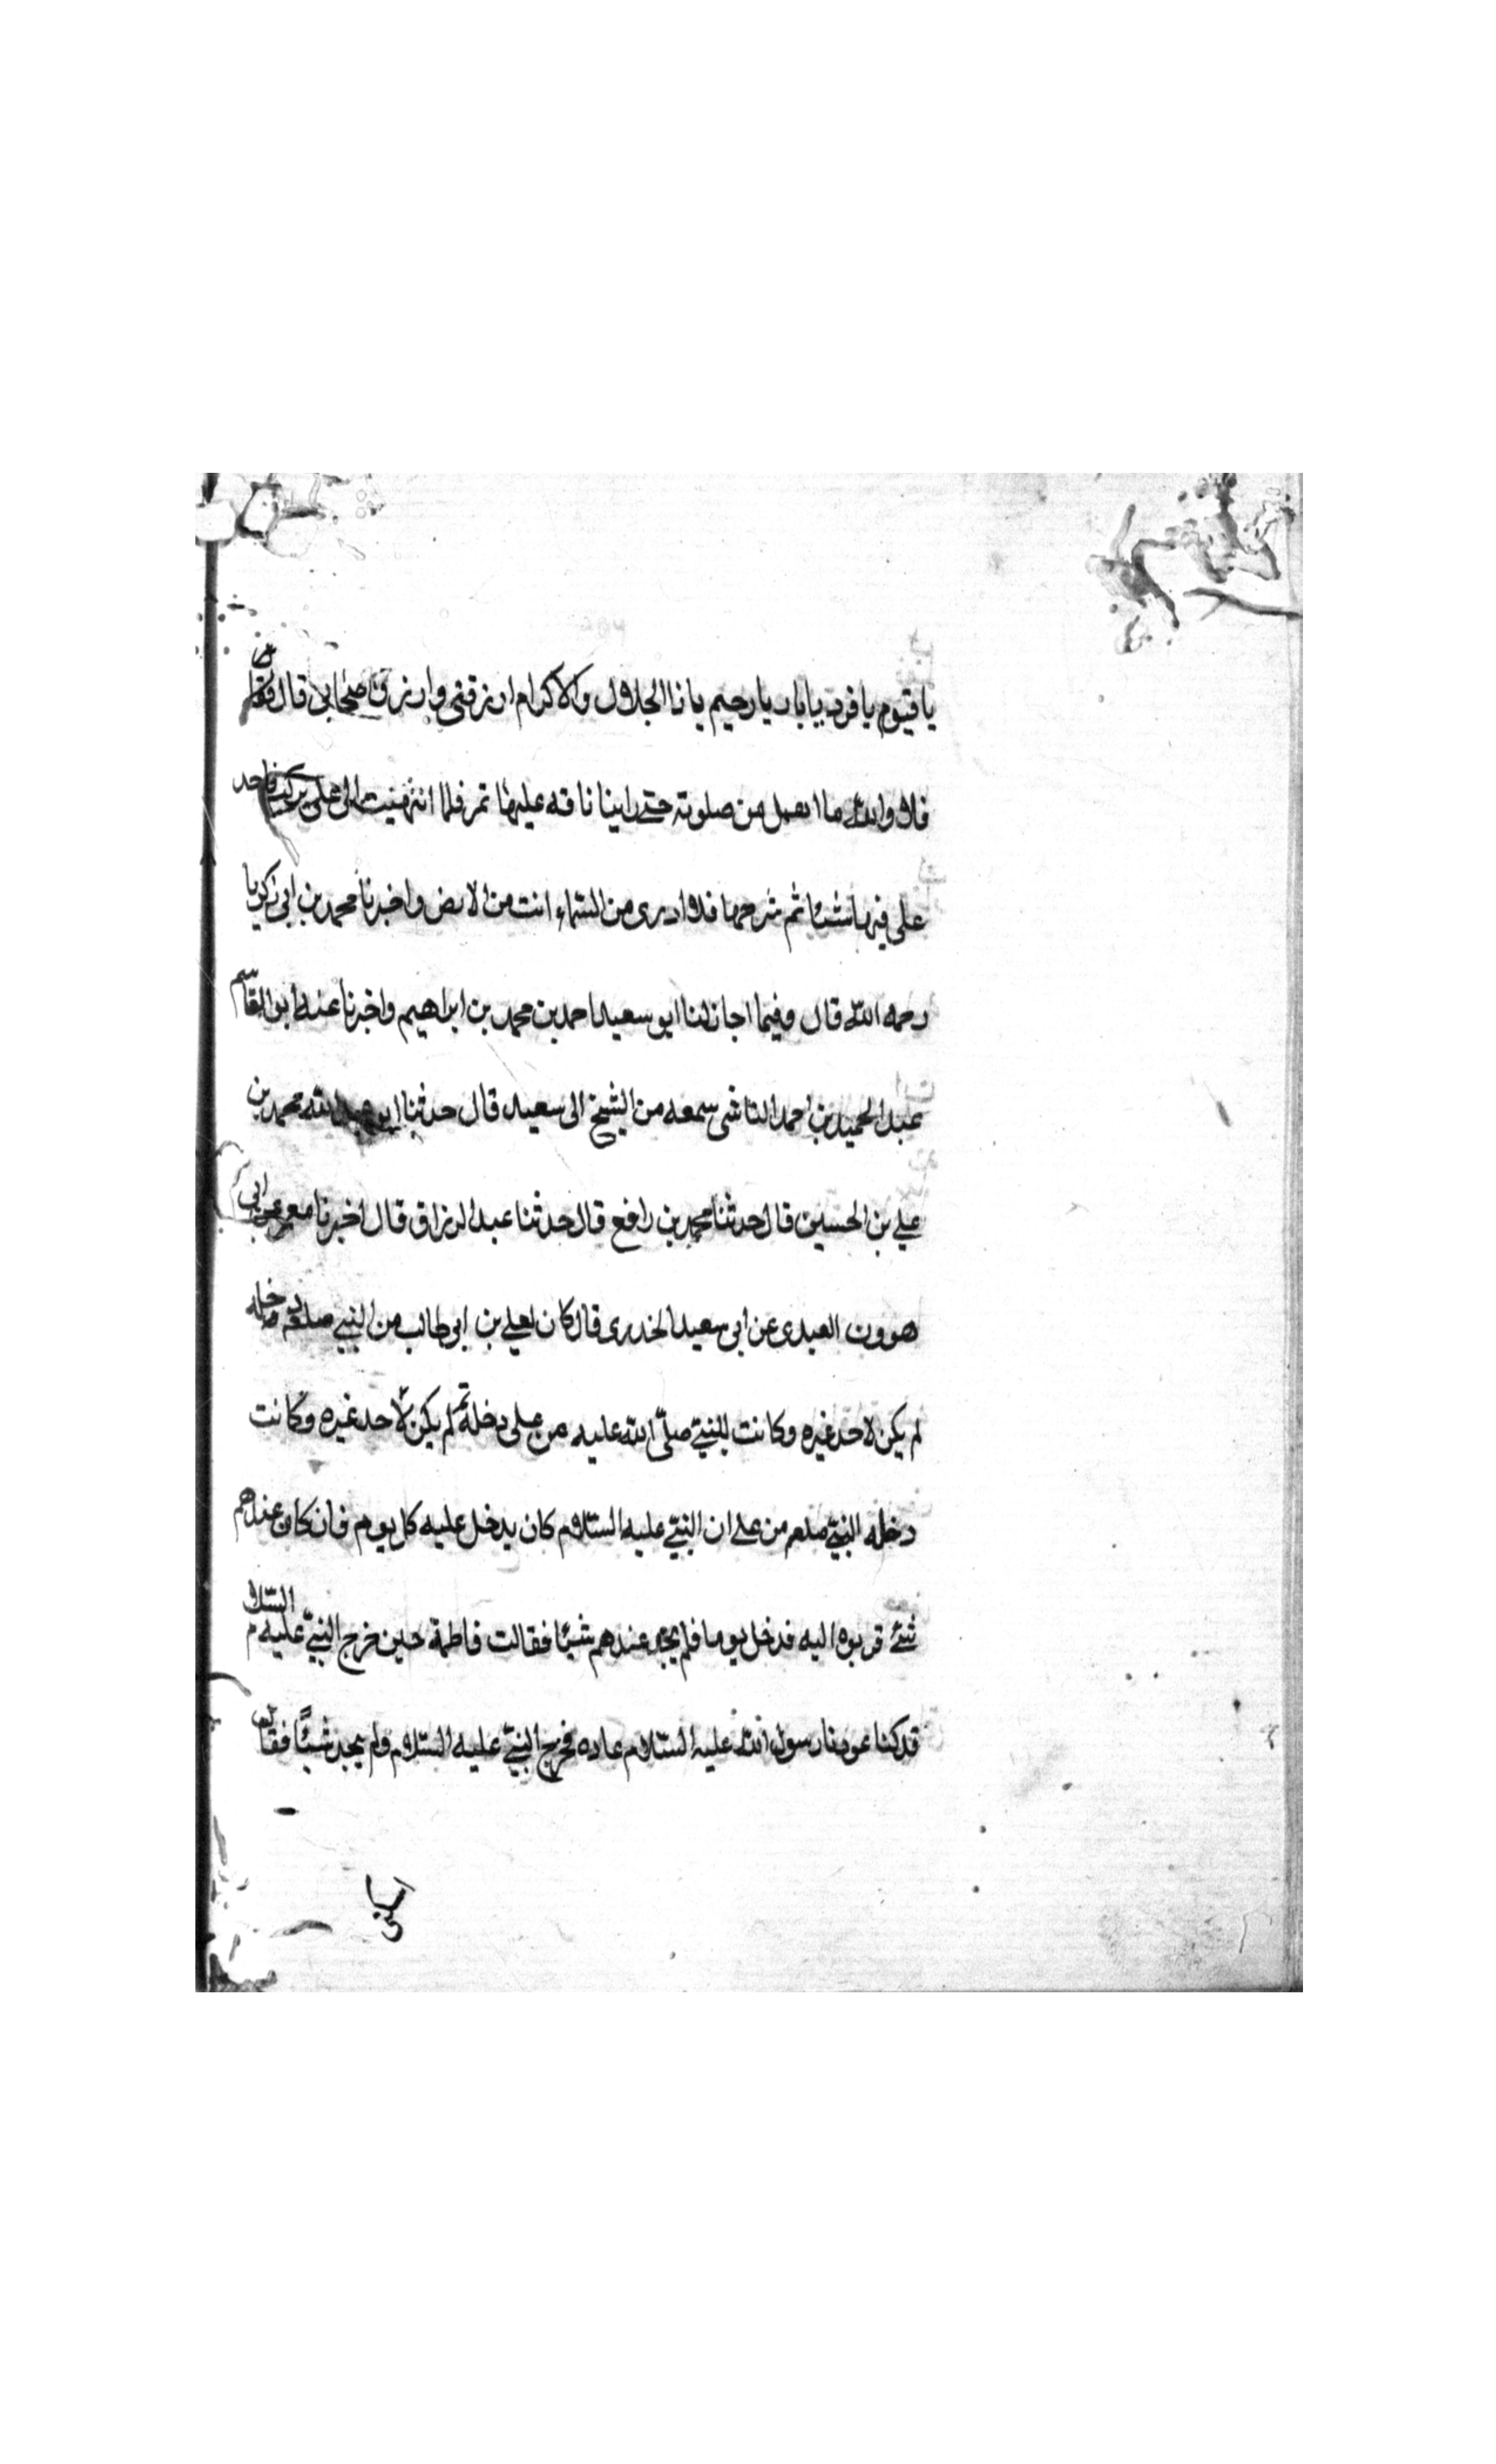 يا قيوم يا فرد يا بار يا رحيم يا ذا الجلال والاكرام ارزقنى وارزق اصحابى قال
فلا والله ما انفتل من صلوته حتى راينا ناقه عليها تمر فلما انتهيت الى على بركت فاخد
على فيها شيئا ثم سرحها فلا ادرى من السماء انت من الارض واخبرنا محمد بن ابى زكريا
رحمه الله قال وفيما اجاز لنا ابو سعيد احمد بن محمد بن ابراهيم واخبرنا عنه ابو القاسم
عبد الحميد بن احمد الشاشى سمعه من الشيخ ابى سعيد قال حدثنا ابو عبد الله محمد بن
على بن الحسين قال حدثنا محمد بن رافع قال حدثنا عبد الرزاق قال اخبرنا معمر عن ابى
هرون العبدى عن ابى سعيد الخدرى قال كان لعلى بن ابى طالب من النبى صلعم دخله
لم يكن لاحد غيره وكانت للنبى صلى الله عليه من على دخله لم يكن لاحد غيره وكانت
دخله النبى صلعم من على ان النبى عليه السلام كان يدخل عليه كل يوم فان كان عندهم
شئ قربوه اليه فدخل يوما فلم يجد عندهم شيئا فقالت فاطمة حين خرج النبى عليه السلام
قد كنا عودنا رسول الله عليه السلام عاده فخرج النبى عليه السلام ولم يجد شيئا فقال
اسكتى